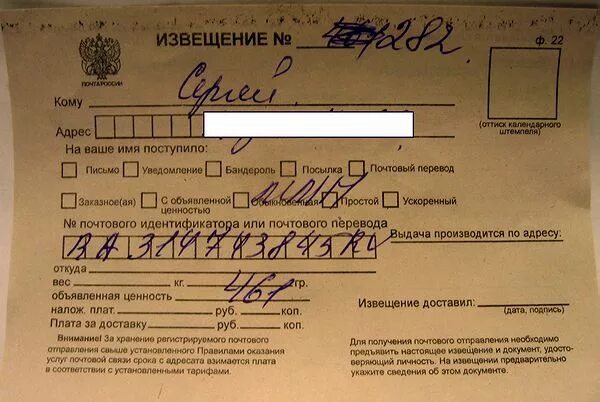 ИЗВЕЩЕНИЕ № 1282
ф. 22
ПОЧТА РОССИИ
Кому Сергей
(оттиск календарного штемпеля)
Адрес
На ваше имя поступило:
Письмо Уведомление Бандероль Посылка Почтовый перевод
Заказное(ая) С объявленной ценностью Обыкновенная Простой Ускоренный
№ почтового идентификатора или почтового перевода
Выдача производится по адресу:
откуда
вес кг. 461 гр.
объявленная ценность
Извещение доставил:
(дата, подпись)
налож. плат. руб. коп.
Плата за доставку руб. коп.
Внимание! За хранение регистрируемого почтового
отправления свыше установленного Правилами оказания
услуг почтовой связи срока с адресата взимается плата
в соответствии с установленными тарифами.
Для получения почтового отправления необходимо
предъявить настоящее извещение и документ, удосто-
веряющий личность. На извещении предварительно
укажите сведения об этом документе.